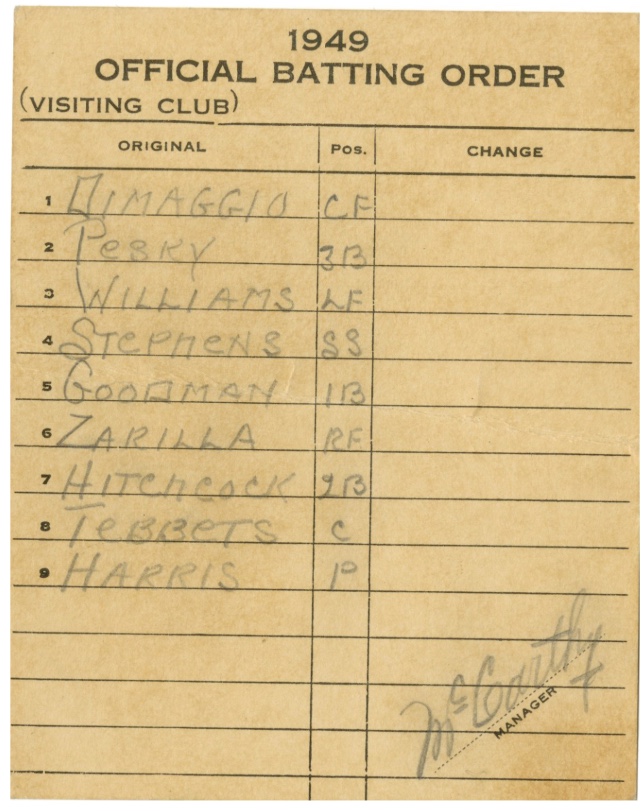 1949
OFFICIAL BATTING ORDER
(VISITING CLUB)
ORIGINAL Pos. CHANGE
1 DIMAGGIO CF
2 PESKY 3B
3 WILLIAMS LF
4 STEPHENS SS
5 GOODMAN 1B
6 ZARILLA RF
7 HITCHCOCK 2B
8 TEBBETS C
9 HARRIS P
McCarthy
MANAGER